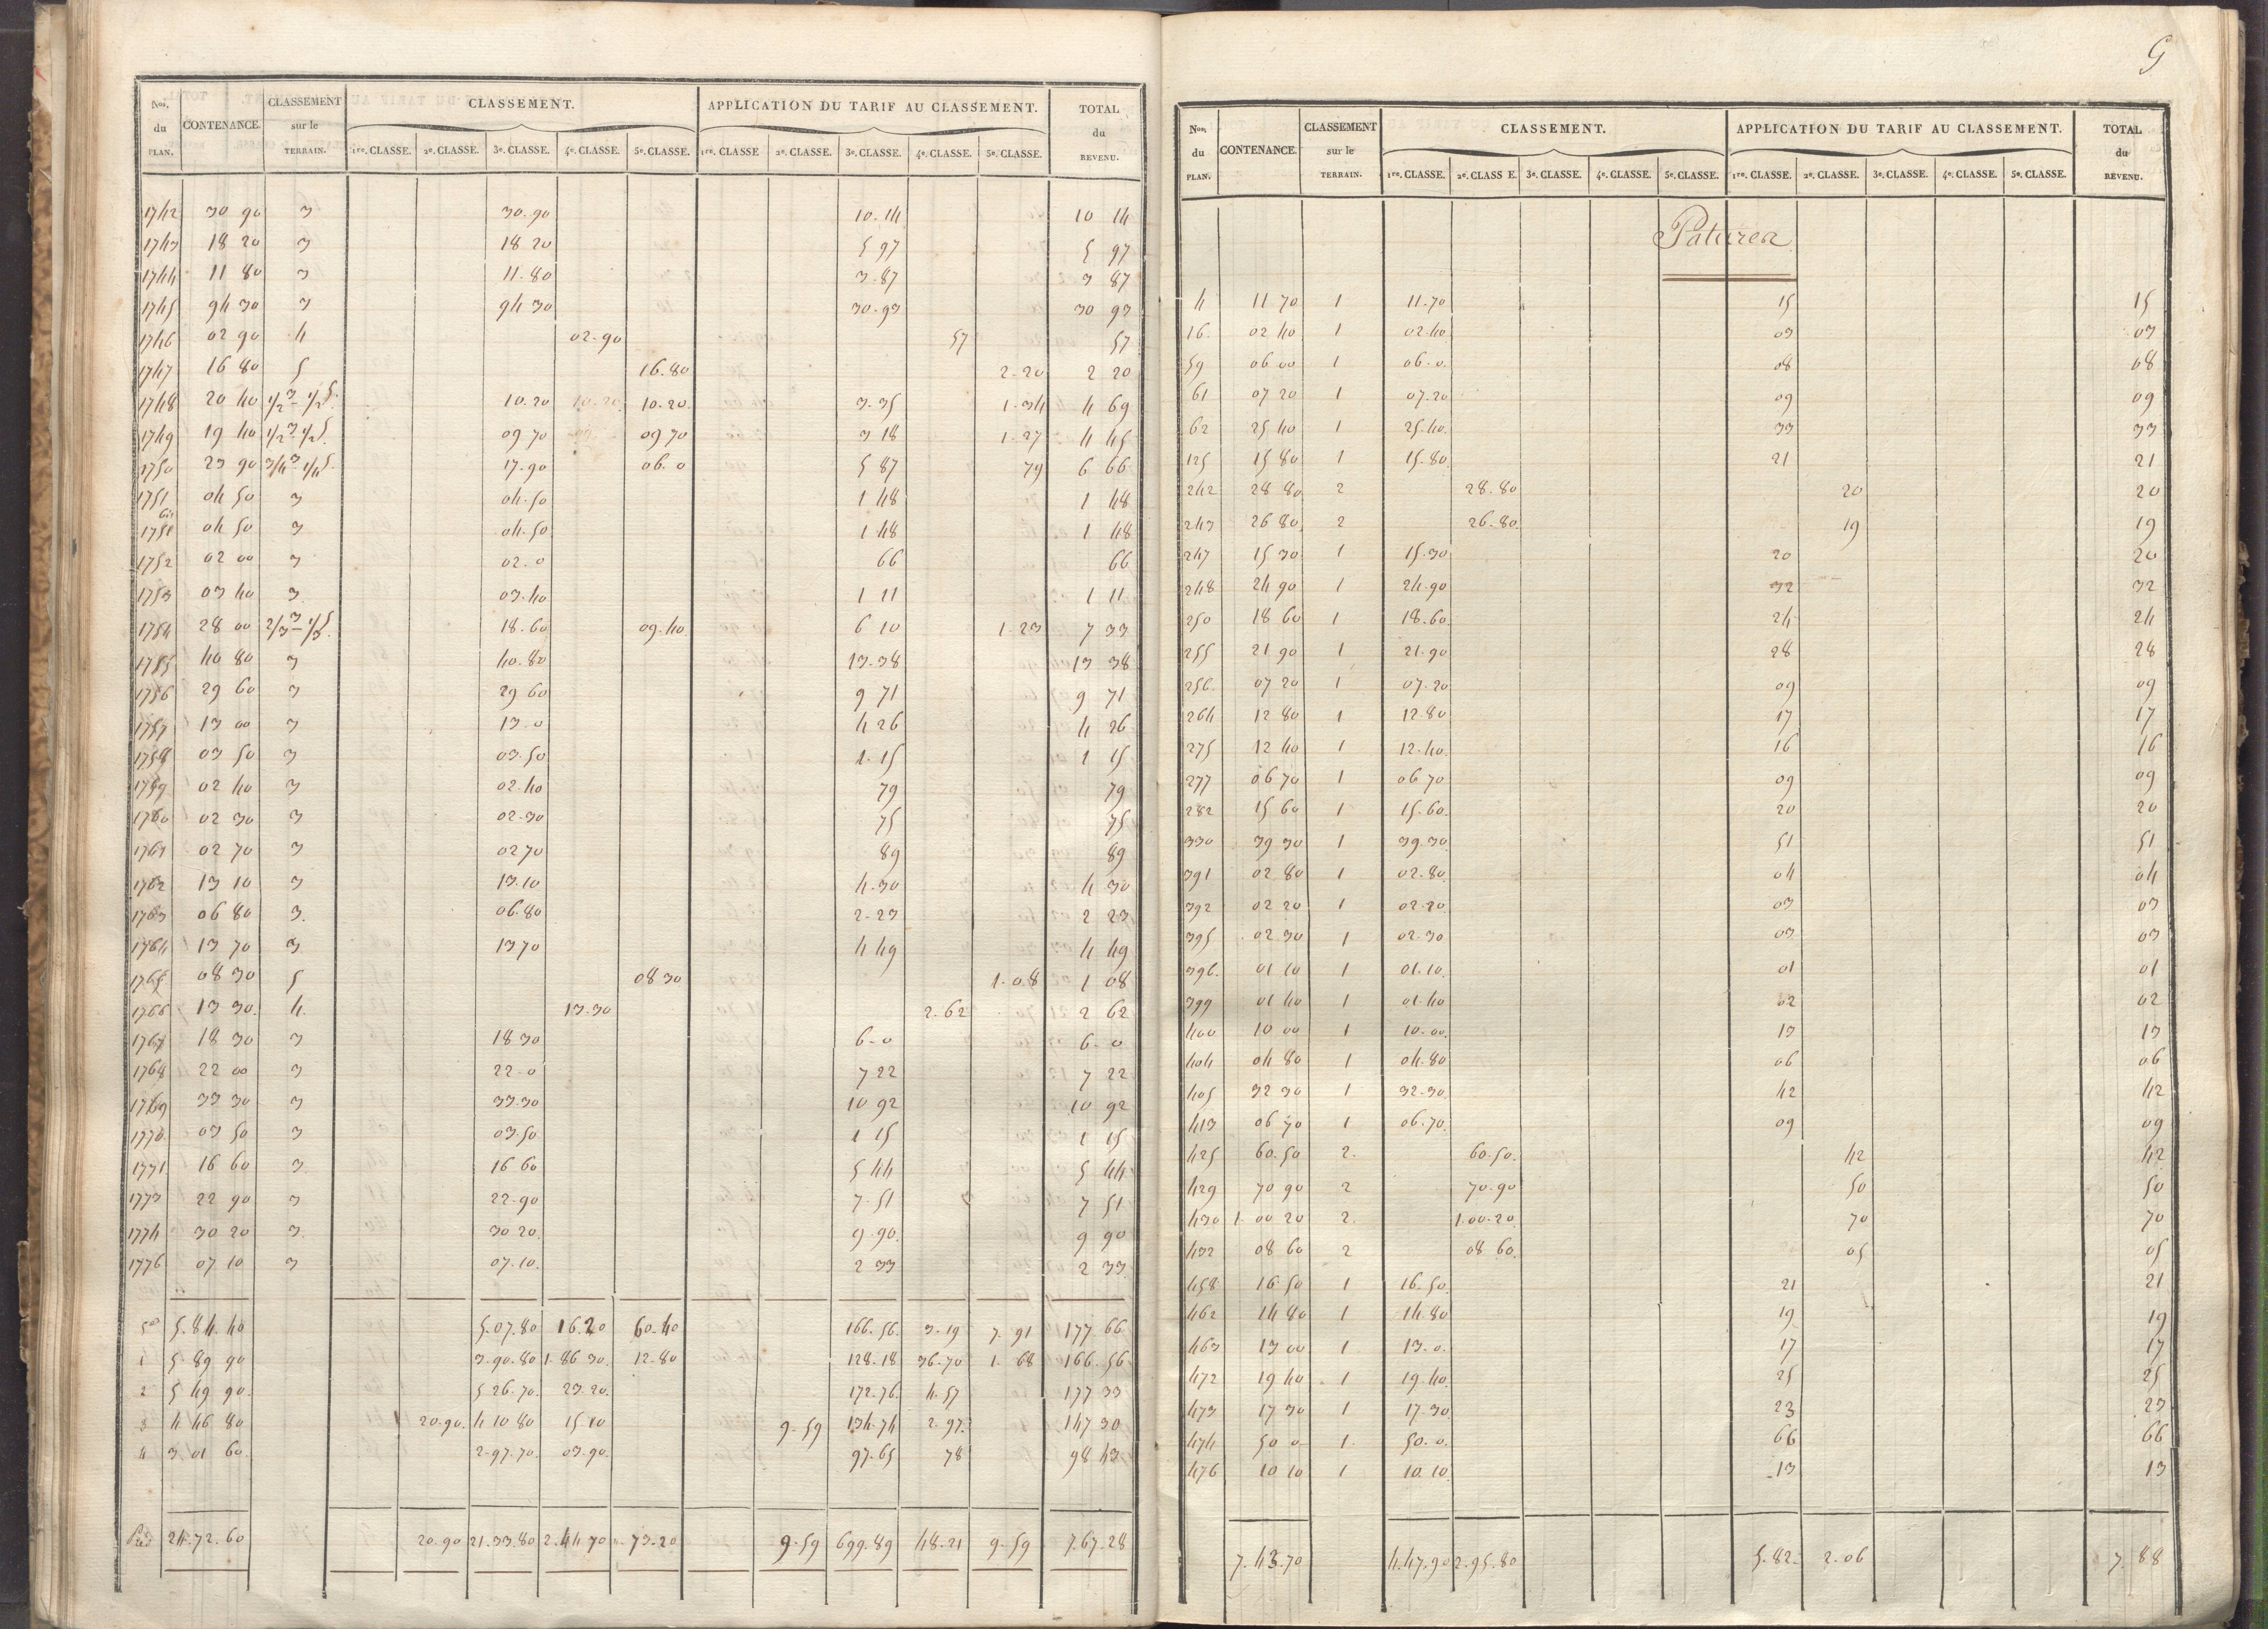 Nos. du PLAN. CONTENANCE. CLASSEMENT sur le TERRAIN. CLASSEMENT. APPLICATION DU TARIF AU CLASSEMENT. TOTAL du REVENU.
1re. CLASSE. 2e. CLASSE. 3e. CLASSE. 4e. CLASSE. 5e. CLASSE. 1re. CLASSE 2e. CLASSE. 3e. CLASSE. 4e. CLASSE. 5e. CLASSE.
1742 30 90 3 30.90 10.14 10 14
1743 18 20 3 18 20 5 97 5 97
1744 11 80 3 11.80 3.87 3 87
1745 94 30 3 94 30 30.93 30 93
1746 02 90 4 02.90 57 57
1747 16 80 5 16.80 2.20 2 20
1748 20 40 1/2 3 - 1/2 5. 10.20 10.20 10.20 3.35 1.34 4 69
1749 19 40 1/2 3 1/2 5. 09 70 09 70 3 18 1.27 4 45
1750 23 90 3/4 3 1/4 5. 17.90 06.0 5 87 79 6 66
1751 04 50 3 04.50 1 48 1 48
1751 bis 04 50 3 04.50 1 48 1 48
1752 02 00 3 02.0 66 66
1753 03 40 3. 03.40 1 11 1 11
1754 28 00 2/3 3 - 1/3 5. 18.60 09.40 6 10 1.23 7 33
1755 40 80 3 40.80 13.38 13 38
1756 29 60 3 29 60 9 71 9 71
1757 13 00 3 13.0 4 26 4 26
1758 03 50 3 03.50 1.15 1 15
1759 02 40 3 02.40 79 79
1760 02 30 3 02.30 75 75
1761 02 70 3 02 70 89 89
1762 13 10 3 13.10 4.30 4 30
1763 06 80 3. 06.80 2.23 2 23
1764 13 70 3 13 70 4 49 4 49
1765 08 30 5 08 30 1.08 1 08
1766 13 30. 4. 13.30 2.62 2 62
1767 18 30 3 18 30 6-0 6-0
1768 22 00 3 22.0 7 22 7 22
1769 33 30 3 33.30 10 92 10 92
1770. 03 50 3 03.50 1 15 1 15
1771 16 60 3 16 60 5 44 5 44
1773 22 90 3 22.90 7.51 7 51
1774 30 20 3 30 20 9.90. 9 90
1776 07 10 3 07.10. 2 33 2 33
5 5.84.40 5.07.80 16.20 60.40 166.56. 3.19 7.91 177 66
1 5 89 90 3.90.80 1.86 30. 12.80 128.18 36.70 1.68 166.56
2 5 49 90. 5 26.70. 23.20. 172.76. 4.57 177 33
3 4 46 80 20.90. 4 10 80 15 10 9.59 134.74 2.97. 147 30
4 3 01 60. 2.97.70. 03.90. 97.65 78 98 43
24.72.60 20.90 21.33.80 2.44 70 73.20 9.59 699.89 48.21 9.59 7.67.28
G
Nos. du PLAN. CONTENANCE. CLASSEMENT sur le TERRAIN. CLASSEMENT. APPLICATION DU TARIF AU CLASSEMENT. TOTAL du REVENU.
1re. CLASSE. 2e. CLASS E. 3e. CLASSE. 4e. CLASSE. 5e. CLASSE. 1re. CLASSE. 2e. CLASSE. 3e. CLASSE. 4e. CLASSE. 5e. CLASSE.
Patures
4 11 70 1 11.70 15 15
16. 02 40 1 02.40 03 03
59 06 00 1 06.0. 08 08
61 07 20 1 07.20 09 09
62 25 40 1 25.40. 33 33
125 15 80 1 15.80 21 21
242 28 80 2 28.80 20 20
243 26 80 2 26.80. 19 19
247 15 30 1 15.30 20 20
248 24 90 1 24.90 32 32
250 18 60 1 18.60 24 24
255 21 90 1 21.90 28 28
256. 07 20 1 07.20 09 09
264 12 80 1 12.80 17 17
275 12 40 1 12.40. 16 16
277 06 70 1 06 70 09 09
282 15 60 1 15.60. 20 20
330 39 30 1 39.30. 51 51
391 02 80 1 02.80. 04 04
392 02 20 1 02.20. 03 03
395 02.30 1 02.30 03 03
396. 01 10 1 01.10. 01 01
399 01 40 1 01.40 02 02
400 10 00 1 10.00. 13 13
404 04 80 1 04.80 06 06
405 32 30 1 32.30. 42 42
413 06 70 1 06.70. 09 09
425 60.50 2. 60.50. 42 42
429 70 90 2 70.90 50 50
430 1.00 20 2. 1.00.20. 70 70
432 08 60 2 08 60. 05 05
458 16 50 1 16.50. 21 21
462 14 80 1 14.80 19 19
463 13 00 1 13.0. 17 17
472 19 40 1 19.40. 25 25
473 17 30 1 17.30 23 23
474 50 0 1. 50.0. 66 66
476 10 10 1 10.10. 13 13
7.43.70 4.47.90 2.95.80 5.82. 2.06 7.88